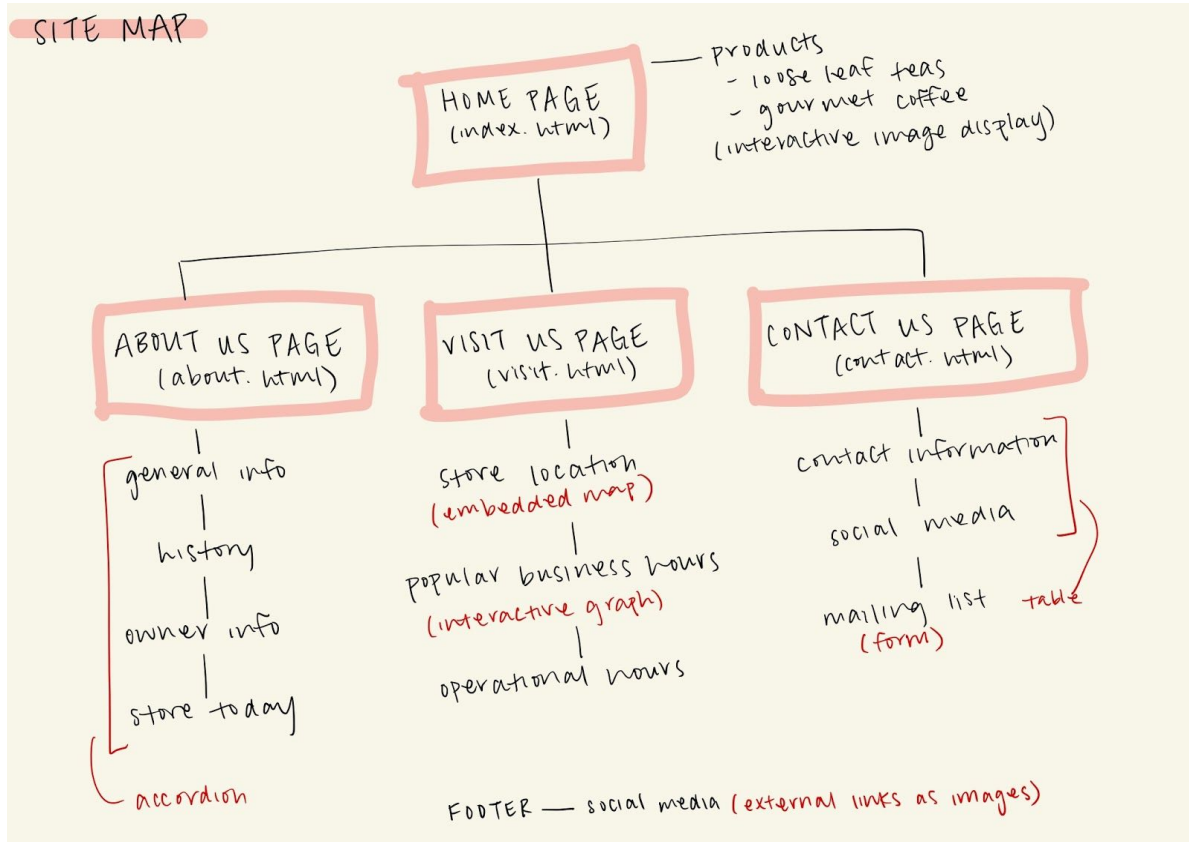 SITE MAP
HOME PAGE
(index.html)
products
- loose leaf teas
- gourmet coffee
(interactive image display)
ABOUT US PAGE
(about.html)
general info
history
owner info
store today
accordion
VISIT US PAGE
(visit.html)
store location
(embedded map)
popular business hours
(interactive graph)
operational hours
CONTACT US PAGE
(contact.html)
contact information
social media
mailing list
(form)
table
FOOTER — social media (external links as images)